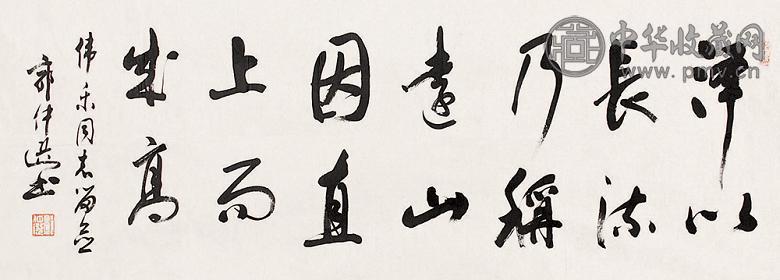 泽以
長流
乃稱
遠山
因直
上而
成高
伟同志留念
郭仲选书
中华收藏网
www.pmv.cn